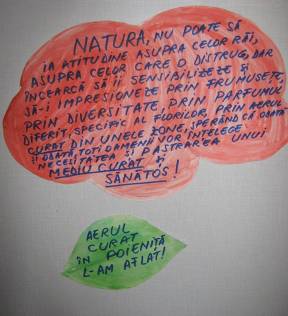 NATURA, NU POATE SĂ
IA ATITUDINE ASUPRA CELOR RĂI,
ASUPRA CELOR CARE O DISTRUG, DAR
ÎNCEARCĂ SĂ ÎI SENSIBILIZEZE ȘI
SĂ-I IMPRESIONEZE PRIN FRUMUSEȚE,
PRIN DIVERSITATE, PRIN PARFUMUL
DIFERIT, SPECIFIC AL FLORILOR, PRIN AERUL
CURAT DIN UNELE ZONE, SPERÂND CĂ ODATĂ
ȘI ODATĂ, TOȚI OAMENII VOR ÎNȚELEGE
NECESITATEA ȘI PĂSTRAREA UNUI
MEDIU CURAT ȘI
SĂNĂTOS!
AERUL
CURAT
ÎN POIENIȚĂ
L-AM AFLAT!